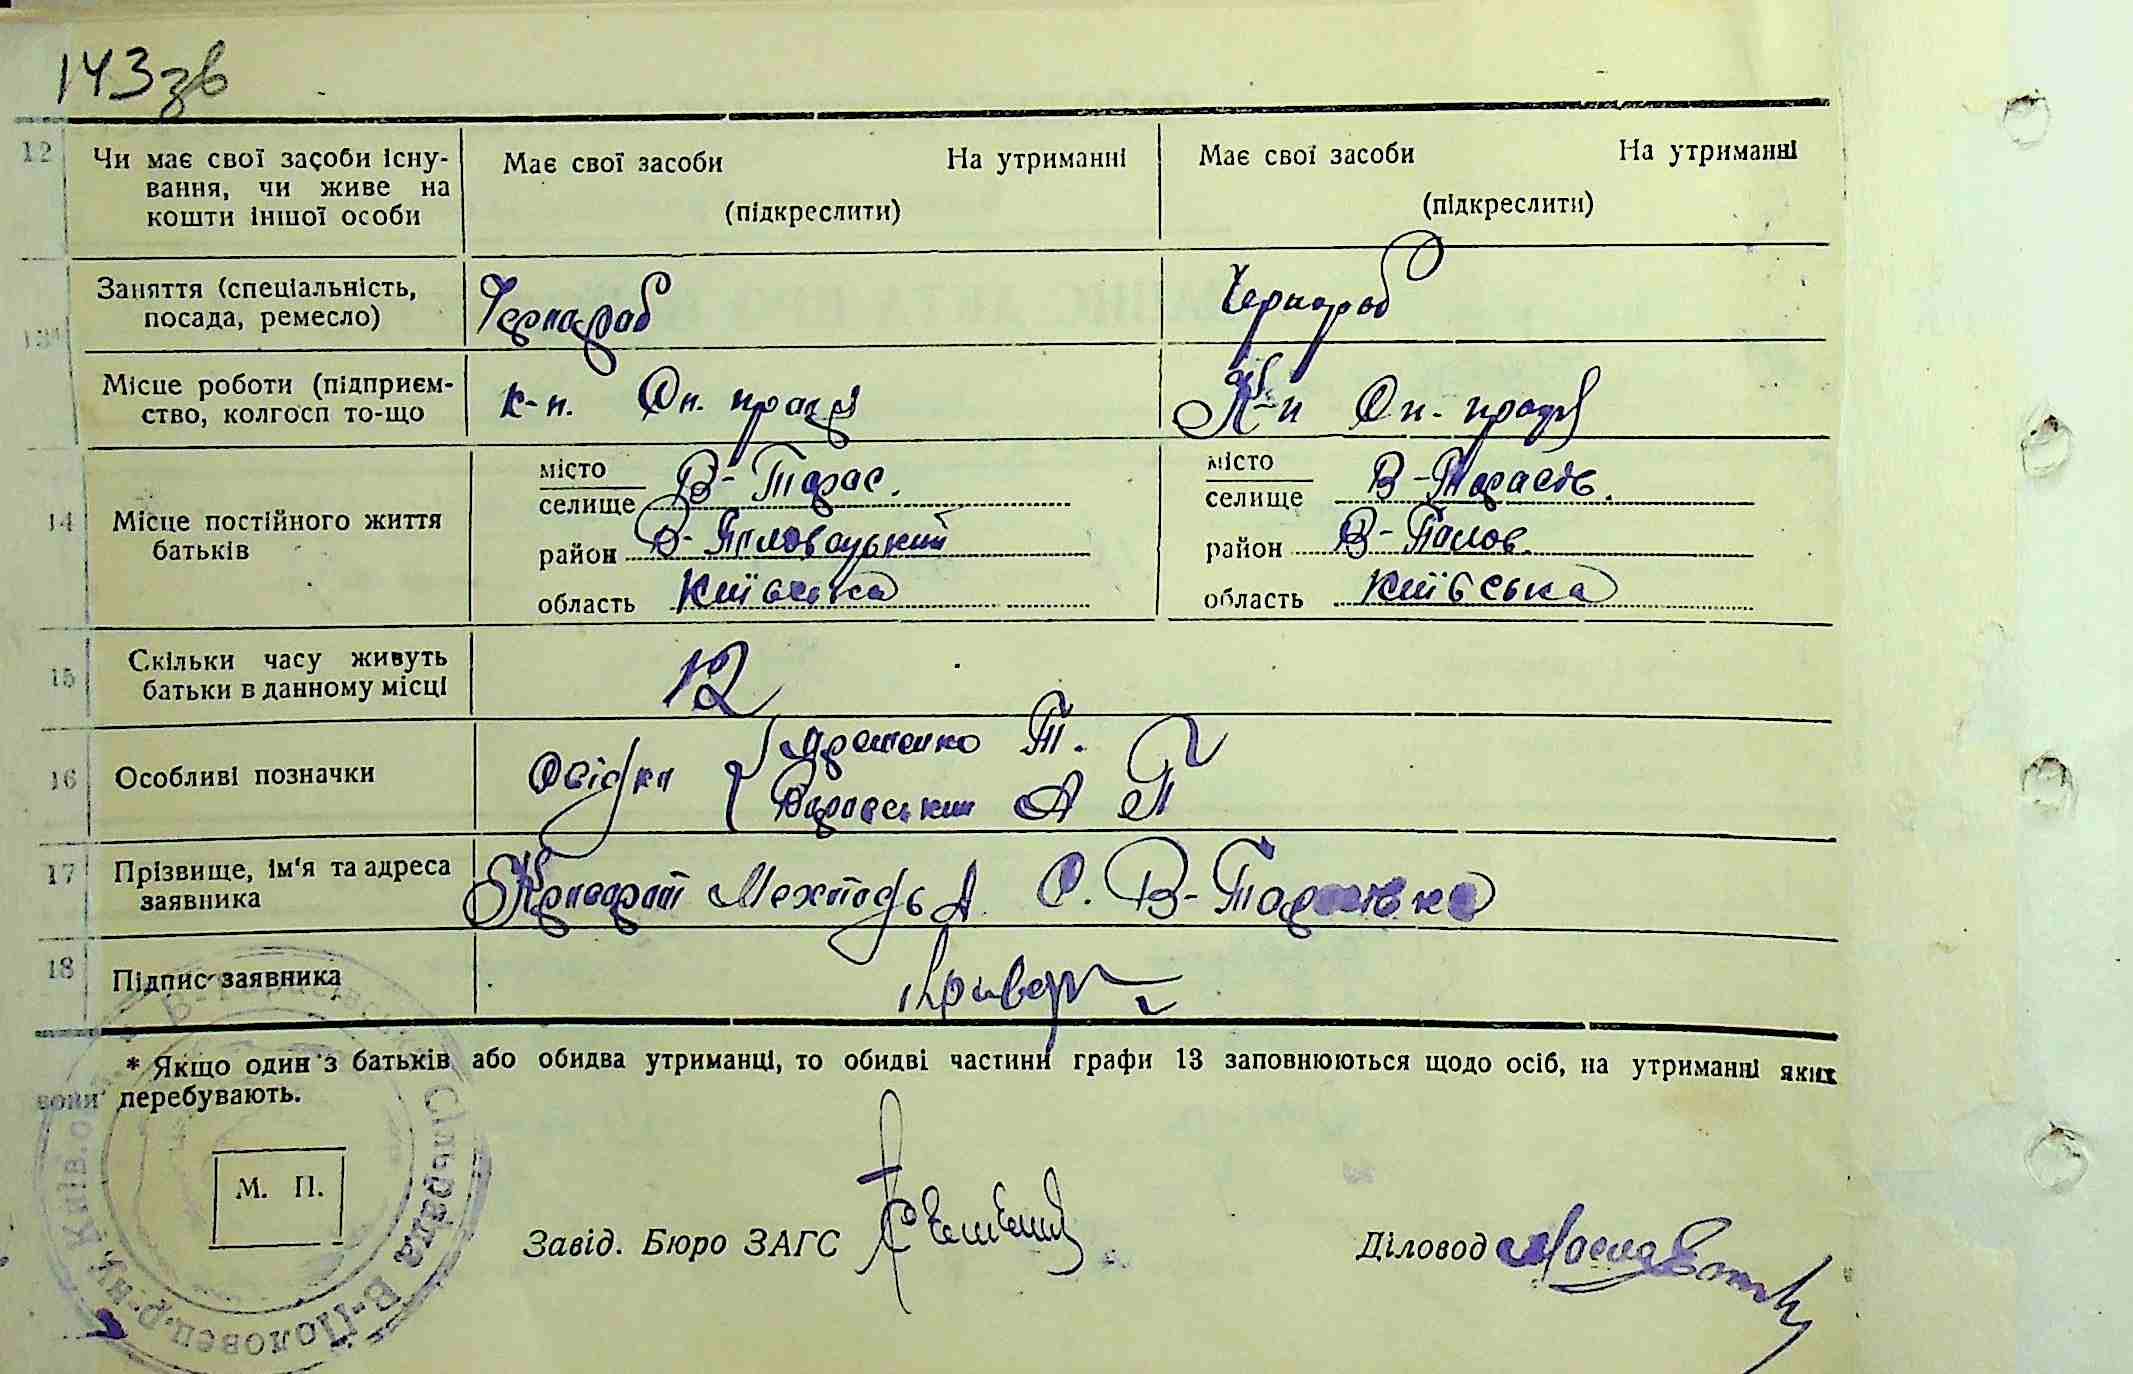 143зв
12 Чи має свої засоби існу-
вання, чи живе на
кошти іншої особи
Має свої засоби На утриманні
(підкреслити)
Має свої засоби На утриманні
(підкреслити)
13* Заняття (спеціальність,
посада, ремесло)
Чернораб
Чернороб
Місце роботи (підприєм-
ство, колгосп то-що
к-п. Он. праця
К-п Он. праця
14 Місце постійного життя
батьків
місто
селище В-Тарас.
район В-Половецький
область Київська
місто
селище В-Тарасів.
район В-Полов.
область Київська
15 Скільки часу живуть
батьки в данному місці
12
16 Особливі позначки
Свідки Яременко Т.
А П
17 Прізвище, ім'я та адреса
заявника
Криворот А. С. В-Тарасівка
18 Підпис заявника
* Якщо один з батьків або обидва утриманці, то обидві частини графи 13 заповнюються щодо осіб, на утриманні яких
вони перебувають.
М. П.
Завід. Бюро ЗАГС
Діловод
Сільрада В-Половец. р-ну, Київ. обл. В-Тарасівська